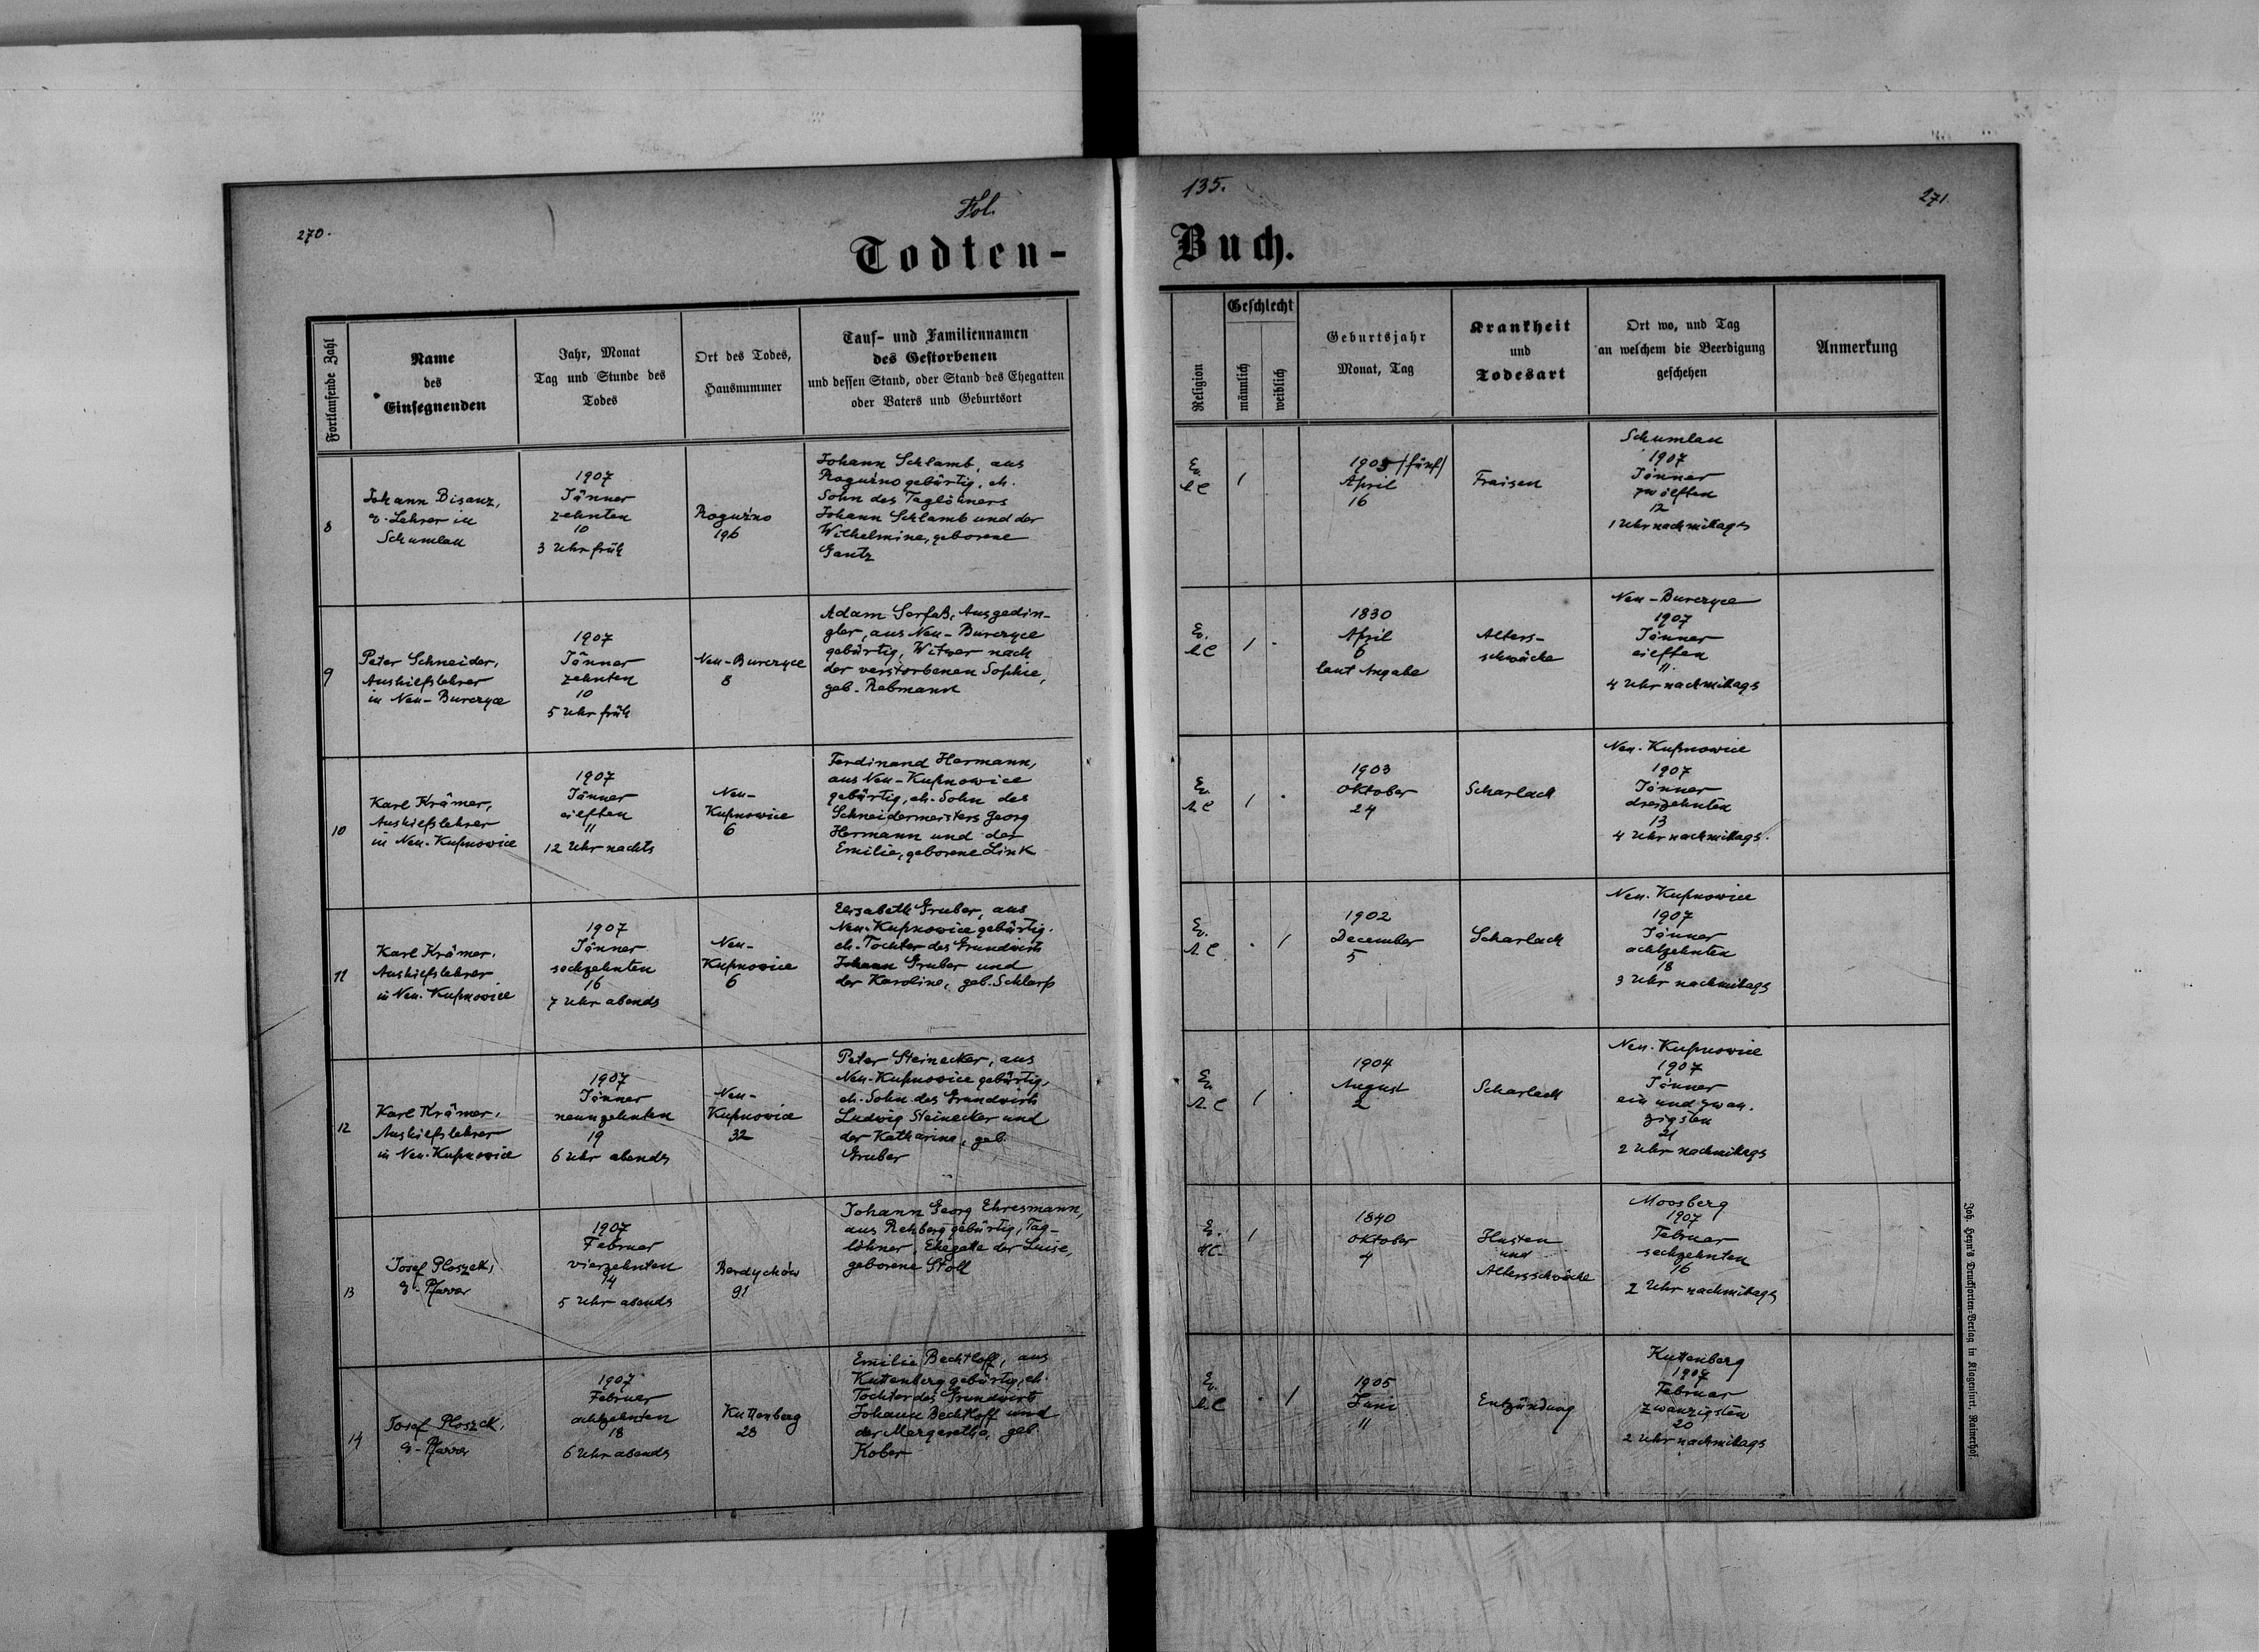 270.
Fol.
135.
271.
Todten-
Buch.
Fortlaufende Zahl
Name
des
Einsegnenden
Jahr, Monat
Tag und Stunde des
Todes
Ort des Todes,
Hausnummer
Tauf- und Familiennamen
des Gestorbenen
und dessen Stand, oder Stand des Ehegatten
oder Vaters und Geburtsort
Religion
Geschlecht
männlich
weiblich
Geburtsjahr
Monat, Tag
Krankheit
und
Todesart
Ort wo, und Tag
an welchem die Beerdigung
geschehen
Anmerkung
8
Johann Bisanz,
e. Lehrer in
Schumlau
1907
Jänner
zehnten
10
3 Uhr früh
Roguźno
196
Johann Schlamb, aus
Roguźno gebürtig, eh.
Sohn des Taglöhners
Johann Schlamb und der
Wilhelmine, geborene
Gantz
Ev.
A.C
1
1905 /fünf/
April
16
Fraisen
Schumlau
1907
Jänner
zwölften
12
1 Uhr nachmittags
9
Peter Schneider,
Aushilfslehrer
in Neu-Burczyce
1907
Jänner
zehnten
10
5 Uhr früh
Neu-Burczyce
8
Adam Serfaß, Ausgedin-
gler, aus Neu-Burczyce
gebürtig, Witwer nach
der verstorbenen Sophie,
geb. Rebmann
Ev.
A.C
1
1830
April
6
laut Angabe
Alters-
schwäche
Neu-Burczyce
1907
Jänner
eilften
11.
4 Uhr nachmittags
10
Karl Krämer,
Aushilfslehrer
in Neu-Kupnowice
1907
Jänner
eilften
11
12 Uhr nachts
Neu-
Kupnowice
6
Ferdinand Hermann,
aus Neu-Kupnowice
gebürtig, eh. Sohn des
Schneidermeisters Georg
Hermann und der
Emilie, geborene Link
Ev.
A.C
1
1903
Oktober
24
Scharlach
Neu-Kupnowice
1907
Jänner
dreizehnten
13
4 Uhr nachmittags.
11
Karl Krämer,
Aushilfslehrer
in Neu-Kupnowice
1907
Jänner
sechzehnten
16
7 Uhr abends
Neu-
Kupnowice
6
Elisabeth Gruber, aus
Neu-Kupnowice gebürtig,
eh. Tochter des Grundwirts
Johann Gruber und
der Karoline, geb. Schlarp
Ev.
A.C.
1
1902
December
5
Scharlach
Neu-Kupnowice
1907
Jänner
achtzehnten
18
3 Uhr nachmittags
12
Karl Krämer,
Aushilfslehrer
in Neu-Kupnowice
1907
Jänner
neunzehnten
19
6 Uhr abends
Neu-
Kupnowice
32
Peter Steinecker, aus
Neu-Kupnowice gebürtig,
eh. Sohn des Grundwirts
Ludwig Steinecker und
der Katharina, geb.
Gruber
Ev.
A.C
1
1904
August
2
Scharlach
Neu-Kupnowice
1907
Jänner
ein und zwan-
zigsten
21
2 Uhr nachmittags
13
Josef Ploszek,
e. Pfarrer
1907
Februar
vierzehnten
14
5 Uhr abends
Berdychów
91
Johann Georg Ehresmann,
aus Rehberg gebürtig, Tag-
löhner, Ehegatte der Luise,
geborene Stoll
Ev.
A.C.
1
1840
Oktober
4
Husten
und
Altersschwäche
Moosberg
1907
Februar
sechzehnten
16
2 Uhr nachmittags
14
Josef Ploszek,
e. Pfarrer
1907
Februar
achtzehnten
18
6 Uhr abends
Kuttenberg
28
Emilie Bechtloff, aus
Kuttenberg gebürtig, eh.
Tochter des Grundwirts
Johann Bechtloff und
der Margaretha, geb.
Kober
Ev.
A.C
1
1905
Juni
11
Entzündung
Kuttenberg
1907
Februar
zwanzigsten
20
2 Uhr nachmittags
Joh. Heyn's Drucksorten-Verlag in Klagenfurt, Rainerhof.